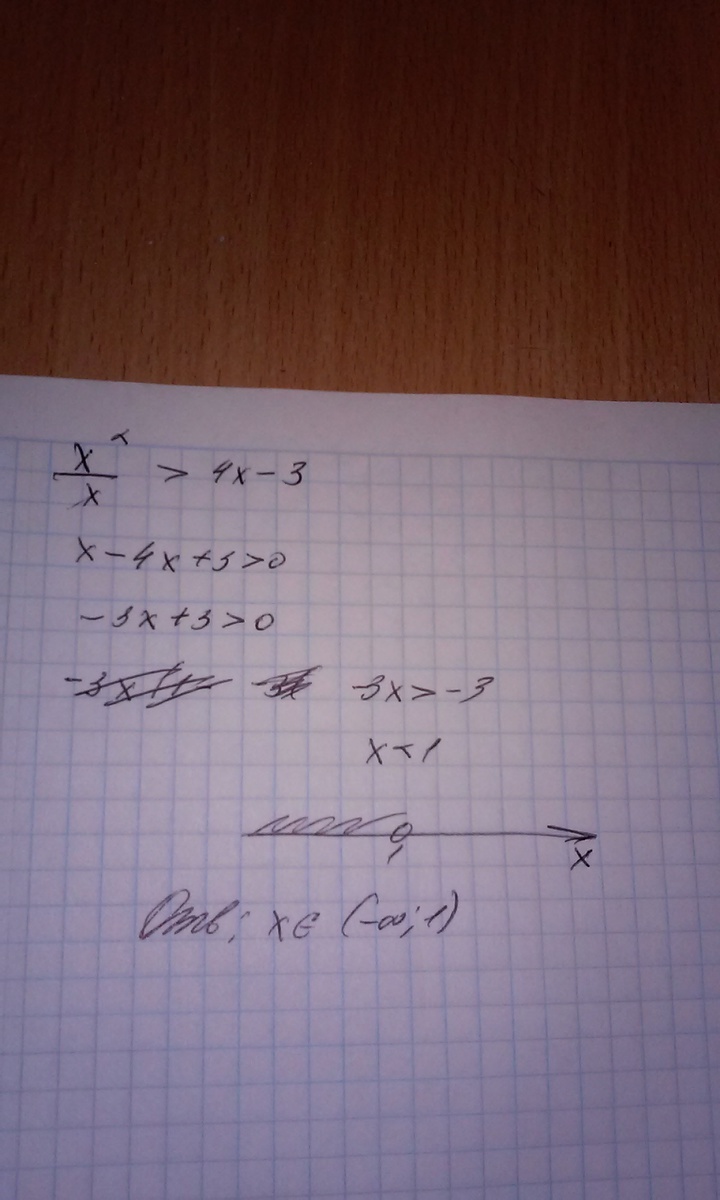 x²/x > 4x - 3
x - 4x + 3 > 0
-3x + 3 > 0
-3x > -3
x < 1
1
x
Отв; x ∈ (-∞; 1)